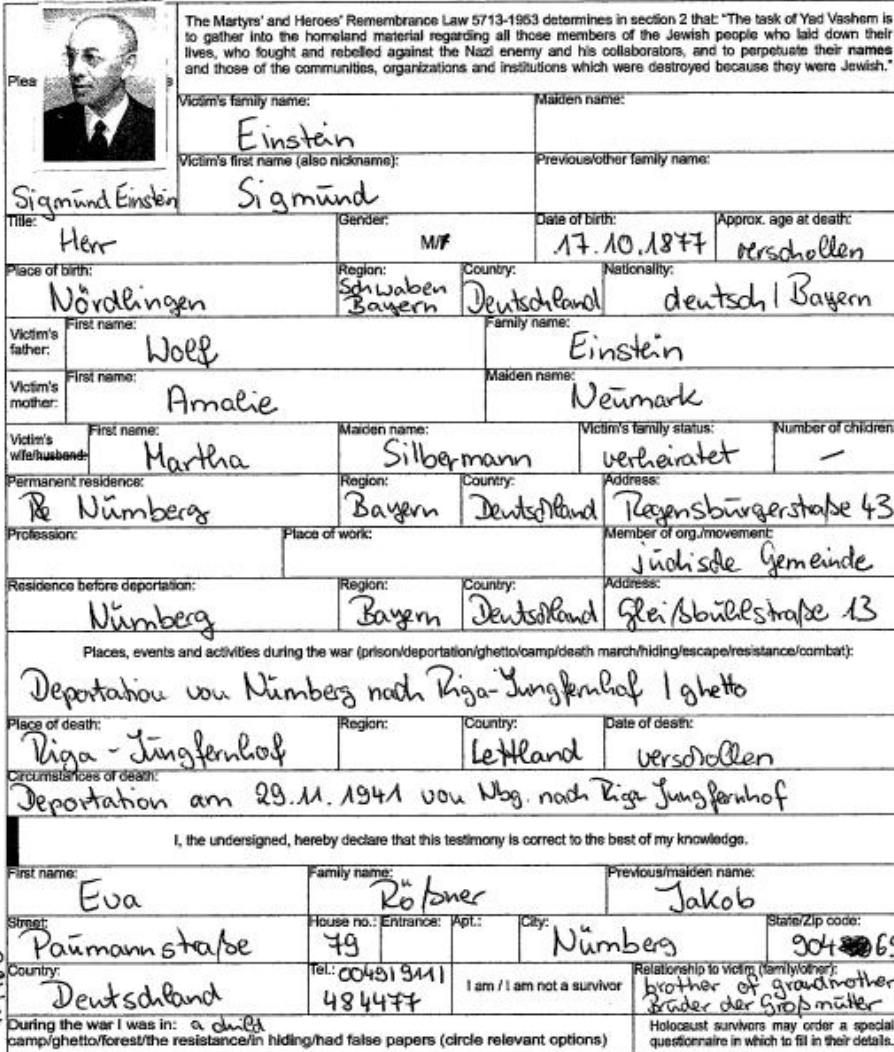 The Martyrs' and Heroes' Remembrance Law 5713-1953 determines in section 2 that: "The task of Yad Vashem is
to gather into the homeland material regarding all those members of the Jewish people who laid down their
lives, who fought and rebelled against the Nazi enemy and his collaborators, and to perpetuate their names
and those of the communities, organizations and institutions which were destroyed because they were Jewish."
Victim's family name: Einstein Maiden name:
Victim's first name (also nickname): Sigmund Previous/other family name:
Sigmund Einstein
Title: Herr Gender: M/F Date of birth: 17.10.1877 Approx. age at death: verschollen
Place of birth: Nördlingen Region: Schwaben Bayern Country: Deutschland Nationality: deutsch / Bayern
Victim's father: First name: Wolf Family name: Einstein
Victim's mother: First name: Amalie Maiden name: Neumark
Victim's wife/husband: First name: Martha Maiden name: Silbermann Victim's family status: verheiratet Number of children: –
Permanent residence: Nürnberg Region: Bayern Country: Deutschland Address: Regensburgerstraße 43
Profession: Place of work: Member of org./movement: jüdische Gemeinde
Residence before deportation: Nürnberg Region: Bayern Country: Deutschland Address: Gleißbühlstraße 13
Places, events and activities during the war (prison/deportation/ghetto/camp/death march/hiding/escape/resistance/combat):
Deportation von Nürnberg nach Riga-Jungfernhof / ghetto
Place of death: Riga - Jungfernhof Region: Country: Lettland Date of death: verschollen
Circumstances of death:
Deportation am 29.11.1941 von Nbg. nach Riga Jungfernhof
I, the undersigned, hereby declare that this testimony is correct to the best of my knowledge.
First name: Eva Family name: Rößner Previous/maiden name: Jakob
Street: Paumannstraße House no.: 79 Entrance: Apt.: City: Nürnberg State/Zip code: 904 69
Country: Deutschland Tel.: 0049/911/ 484477 I am / I am not a survivor Relationship to victim (family/other): brother of grandmother Bruder der Großmutter
During the war I was in: a child
camp/ghetto/forest/the resistance/in hiding/had false papers (circle relevant options)
Holocaust survivors may order a special
questionnaire in which to fill in their details.